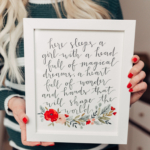 here sleeps a
girl with a head
full of magical
dreams, a heart
full of wonder
and hands that
will shape the
world